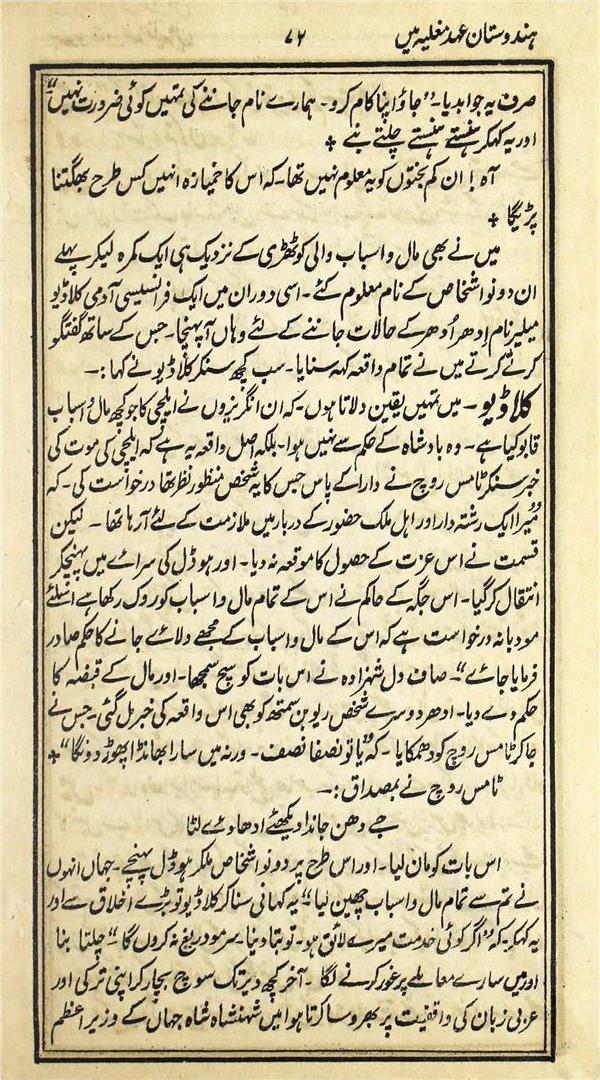 ہندوستان عہد مغلیہ میں
۷۲
صرف یہ جواب دیا۔ ”جاؤ اپنا کام کرو۔ ہمارے نام جاننے کی تمہیں کوئی ضرورت نہیں“
اور یہ کہکر ہنستے ہنستے چلتے بنے +
آہ! ان کم بختوں کو یہ معلوم نہیں تھا۔ کہ اس کا خمیازہ انہیں کس طرح بھگتنا
پڑیگا +
میں نے بھی مال و اسباب والی کوٹھڑی کے نزدیک ہی ایک کمرہ لیکر پہلے
ان دونو اشخاص کے نام معلوم کئے۔ اسی دوران میں ایک فرانسیسی آدمی کلاڈیو
میلیر نام اِدھر اُدھر کے حالات جاننے کے لئے وہاں آ پہنچا۔ جس کے ساتھ گفتگو
کرتے کرتے میں نے تمام واقعہ کہہ سنایا۔ سب کچھ سنکر کلاڈیو نے کہا:۔
کلاڈیو۔ میں تمہیں یقین دلاتا ہوں۔ کہ ان انگریزوں نے ایلچی کا جو کچھ مال و اسباب
قابو کیا ہے۔ وہ بادشاہ کے حکم سے نہیں ہوا۔ بلکہ اصل واقعہ یہ ہے کہ ایلچی کی موت کی
خبر سنکر ٹامس روچ نے دارا کے پاس جس کا یہ شخص منظور نظر تھا درخواست کی۔ کہ
”میرا ایک رشتہ دار اور اہل ملک حضور کے دربار میں ملازمت کے لئے آ رہا تھا۔ لیکن
قسمت نے اس عزت کے حصول کا موقعہ نہ دیا۔ اور ہوڈل کی سرائے میں پہنچکر
انتقال کر گیا۔ اس جگہ کے حاکم نے اس کے تمام مال و اسباب کو روک رکھا ہے اسلئے
مودبانہ درخواست ہے کہ اس کے مال و اسباب کے مجھے دلائے جانے کا حکم صادر
فرمایا جائے“۔ صاف دل شہزادہ نے اس بات کو سچ سمجھا۔ اور مال کے قبضہ کا
حکم دے دیا۔ ادھر دوسرے شخص ریوبن سمتھ کو بھی اس واقعہ کی خبر مل گئی۔ جس نے
جا کر ٹامس روچ کو دھمکایا۔ کہ ”یا تو نصفا نصف۔ ورنہ میں سارا بھانڈا پھوڑ دونگا“ +
ٹامس روچ نے بمصداق:۔
جے دھن جاندا دیکھئے ادھا دیئے لٹا
اس بات کو مان لیا۔ اور اس طرح پر دونو اشخاص ملکر ہوڈل پہنچے۔ جہاں انہوں
نے تم سے تمام مال و اسباب چھین لیا“ یہ کہانی سنا کر کلاڈیو تو بڑے اخلاق سے اور
یہ کہکر کہ ”اگر کوئی خدمت میرے لائق ہو۔ تو بتا دینا۔ سرمو دریغ نہ کروں گا“ چلتا بنا
اور میں سارے معاملے پر غور کرنے لگا۔ آخر کچھ دیر تک سوچ بچار کر اپنی ترکی اور
عربی زبان کی واقفیت پر بھروسا کرتا ہوا میں شہنشاہ شاہ جہاں کے وزیر اعظم